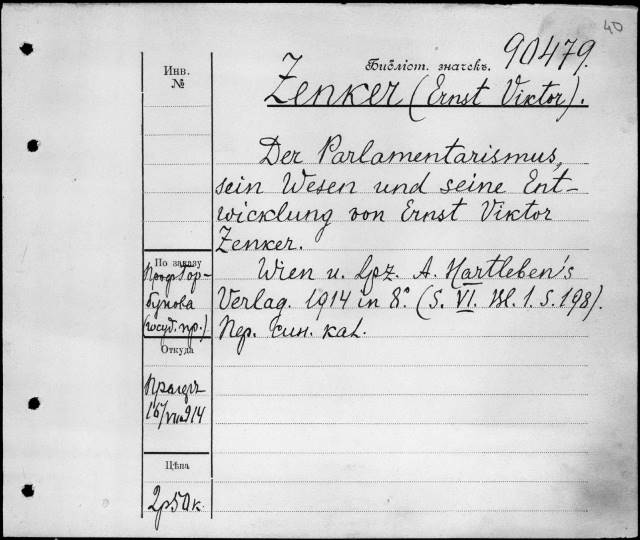 40
Библіот. значекъ. 90479.
Инв.
№
Zenker (Ernst Viktor).
Der Parlamentarismus,
sein Wesen und seine Ent-
wicklung von Ernst Viktor
Zenker.
Wien u. Lpz. A. Hartleben's
Verlag. 1914 in 8.° (S. VI. Bl. 1. S. 198).
Пер. син. кал.
По заказу
Проф Гор-
бунова
(госуд. пр.)
Откуда
Прагеръ
16/VIII 914
Цѣна
2р50к